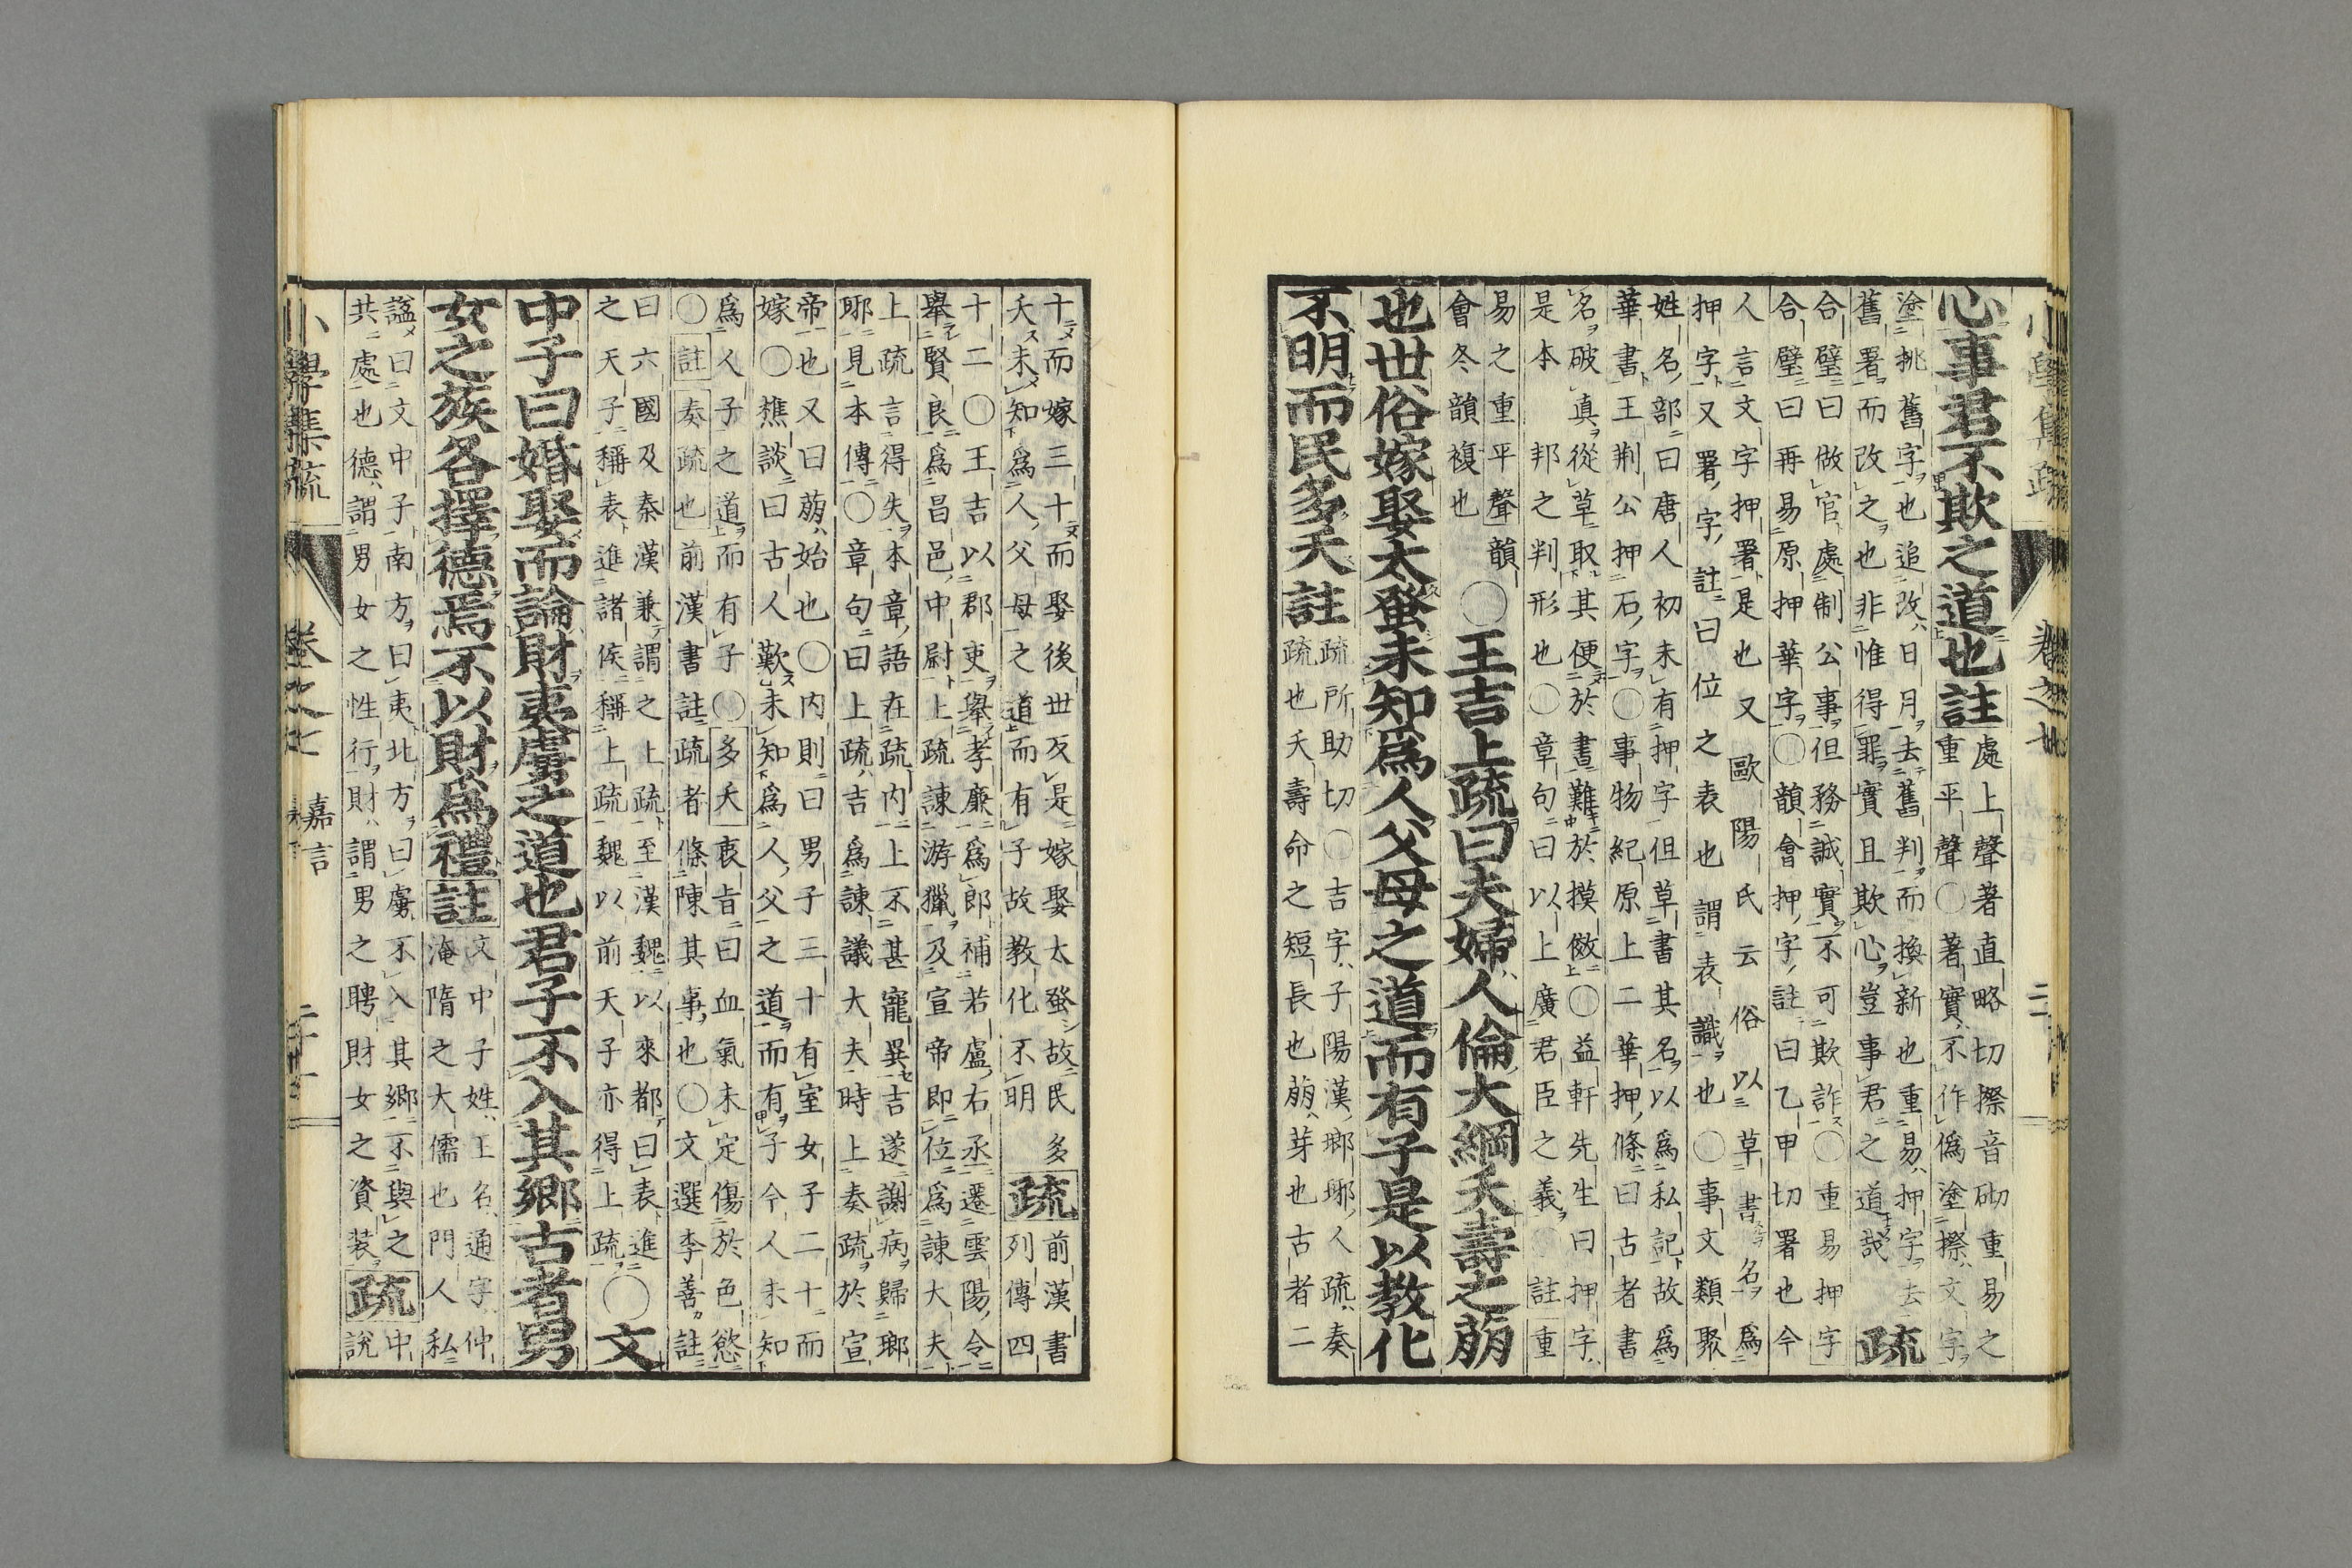 心事君不欺之道也註處上聲著直略切擦音砌重易之
重平聲〇著實不作僞塗擦文字
塗挑舊字也追改日月去舊判而換新也重易押字去
舊署而改之也非惟得罪實且欺心豈事君之道哉 疏
合躄曰做官處制公事但務誠實不可欺詐〇重易押字
合躄曰再易原押華字〇韻會押字註曰乙甲切署也今
人言文字押署是也又歐陽氏云俗以草書名爲
押字又署字註曰位之表也謂表識也〇事文類聚
姓名部曰唐人初未有押字但草書其名以爲私記故爲
華書王荆公押石字〇事物紀原上二華押條曰古者書
名破真從草取其便於書難於摸倣〇益軒先生曰押字
是本邦之判形也〇章句曰以上廣君臣之義 註重
易之重平聲韻
會冬韻複也
〇王吉上疏曰夫婦人倫大綱夭壽之萠
也世俗嫁娶太蚤未知爲人父母之道而有子是以教化
不明而民多夭註疏所助切〇吉字子陽漢瑯琊人疏奏
疏也夭壽命之短長也萠芽也古者二
十而嫁三十而娶後世反是嫁娶太蚤故民多
夭未知爲人父母之道而有子故教化不明
疏前漢書
列傳四
十二〇王吉以郡吏舉孝廉爲郎補若盧右丞遷雲陽令
舉賢良爲昌邑中尉上疏諫游獵及宣帝即位爲諫大夫
上疏言得失本章語在疏内上不甚寵異吉遂謝病歸瑯
琊見本傳〇章句曰上疏吉爲諫議大夫時上奏疏於宣
帝也又曰萠始也〇内則曰男子三十有室女子二十而
嫁〇樵談曰古人歎未知爲人父之道而有子今人未知
爲人子之道而有子〇多夭衷旨曰血氣未定傷於色慾
〇註奏疏也前漢書註疏者條陳其事也〇文選李善註
曰六國及秦漢兼謂之上疏至漢魏以來都曰表進
之天子稱表進諸侯稱上疏魏以前天子亦得上疏
〇文
中子曰婚娶而論財夷虜之道也君子不入其鄉古者男
女之族各擇德焉不以財爲禮註文中子姓王名通字仲
淹隋之大儒也門人私
謚曰文中子南方曰夷北方曰虜不入其鄉不與之
共處也德謂男女之性行財謂男之聘財女之資装
疏中
說
小學集疏
卷之七
嘉言
二十一